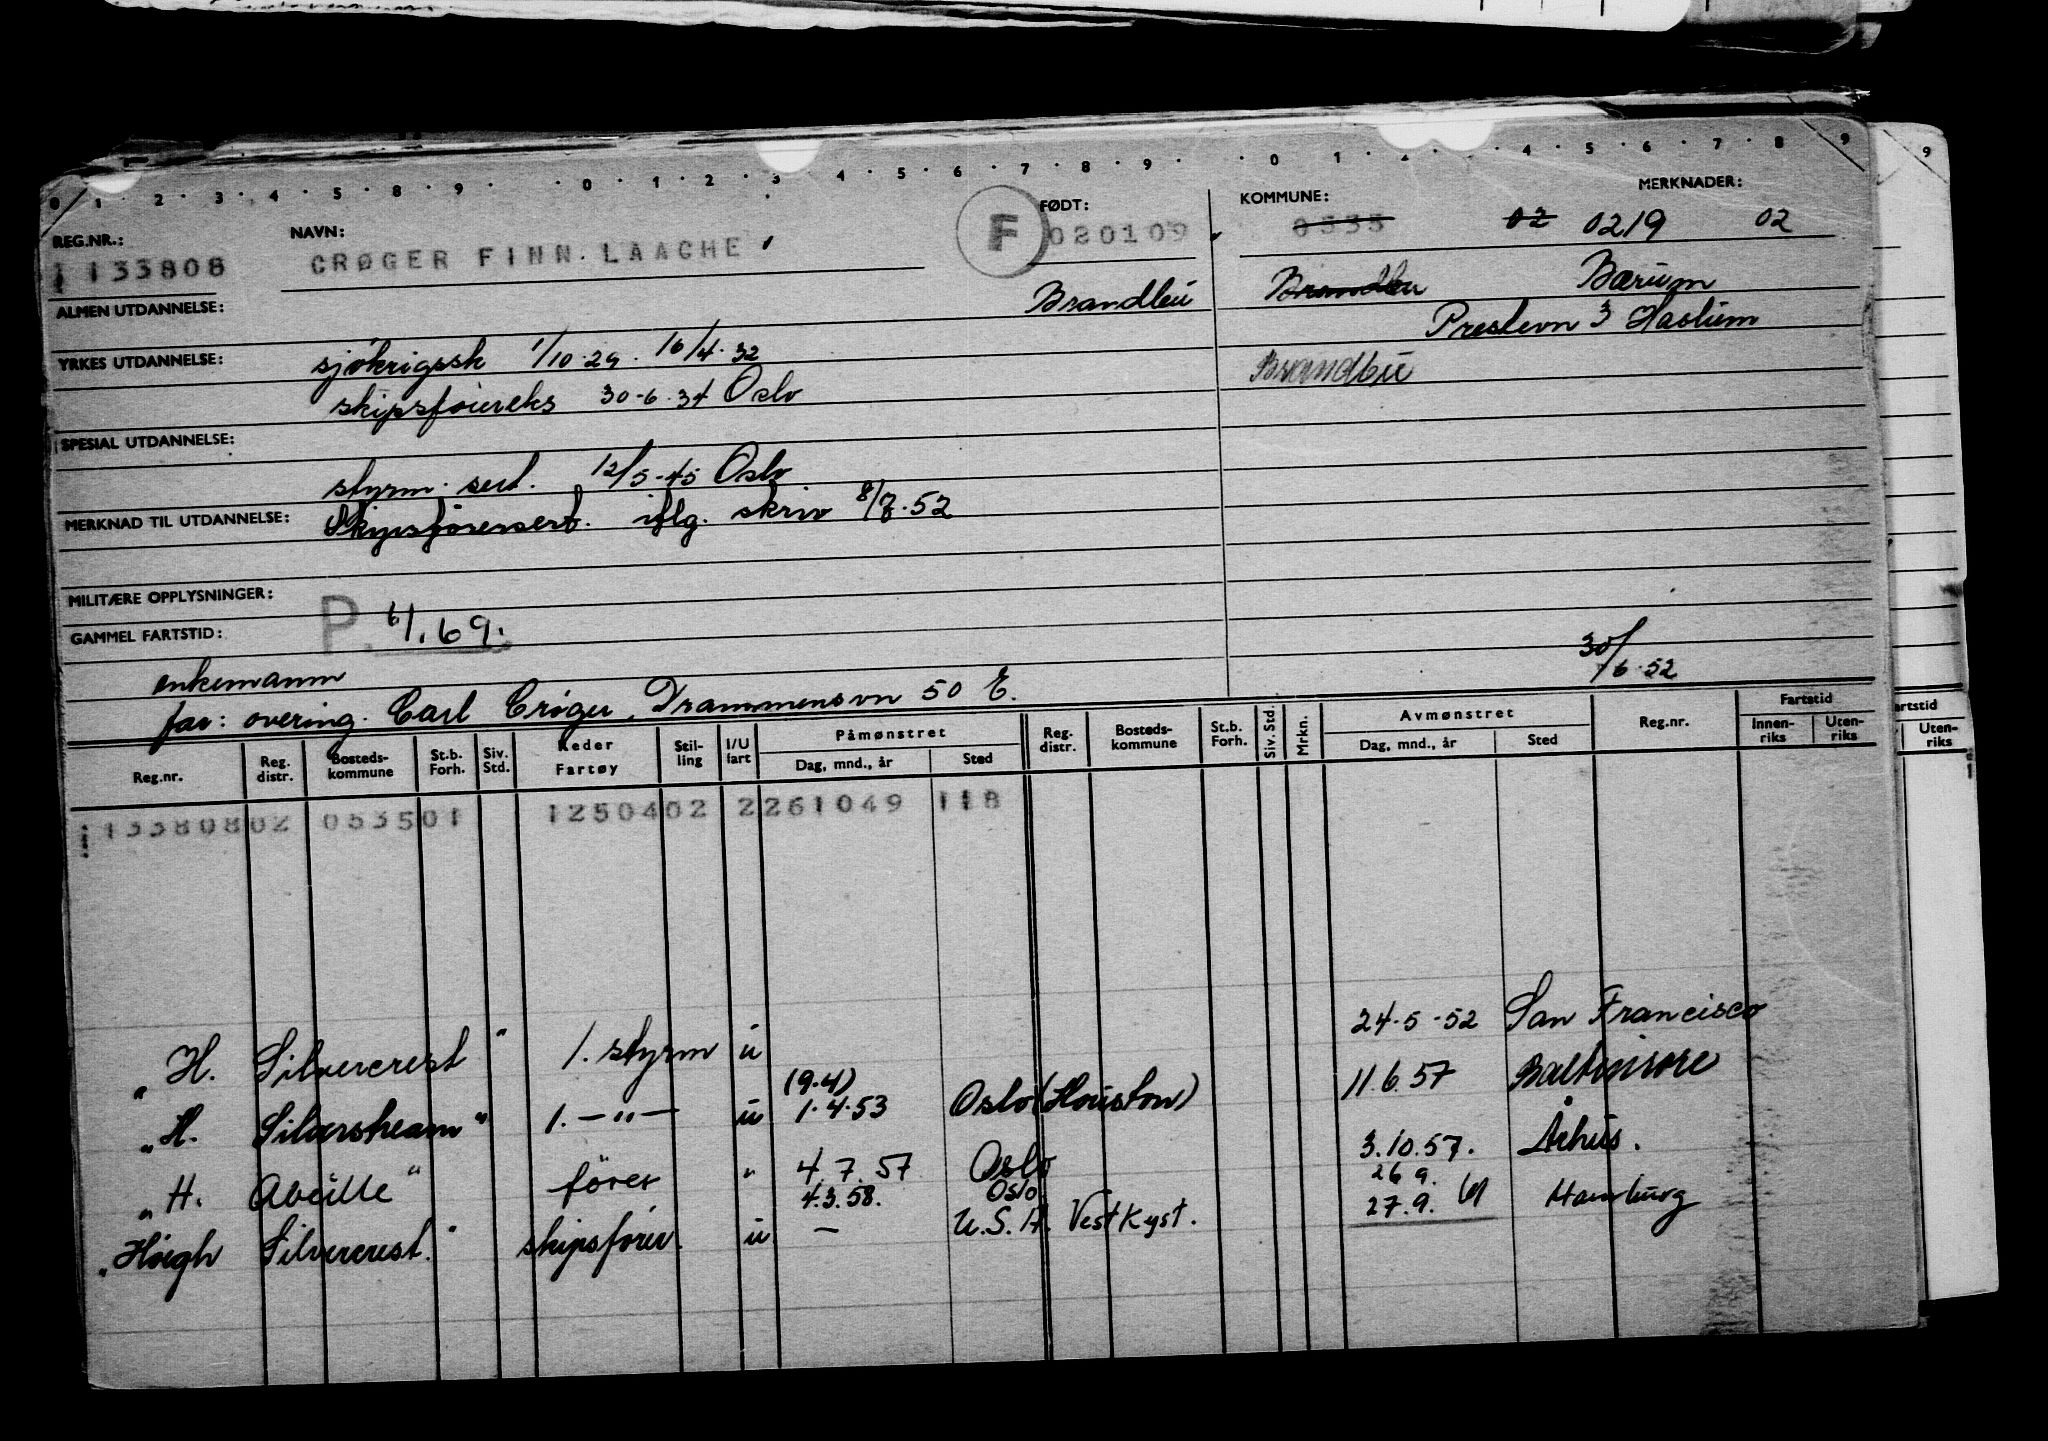 0 1 2 3 4 5 8 9 0 1 2 3 4 5 6 7 8 9 0 1 4 5 6 7 8 9
REG.NR.: NAVN: FØDT: KOMMUNE: MERKNADER:
133808 CRØGER FINN LAACHE F 020109 0535 02 0219 02
ALMEN UTDANNELSE: Brandbu Brandbu Bærum
Prestevn 3 Haslum
YRKES UTDANNELSE: sjökrigssk 1/10.29. 16/4.32 Brandbu
skipsføiereks 30-6.34 Oslo
SPESIAL UTDANNELSE:
styrm. sert. 12/5-45 Oslo
MERKNAD TIL UTDANNELSE: Skipsförersert. iflg. skriv 8/7.52
MILITÆRE OPPLYSNINGER:
GAMMEL FARTSTID: P. 6/1.69.
enkemann 30/6.52
far: overing. Carl Crøger, Drammensvn 50 E.
Reg.nr. Reg. distr. Bosteds-kommune St.b. Forh. Siv. Std. Reder Fartøy Stil-ling I/U fart Påmønstret Dag, mnd., år Sted Reg. distr. Bosteds-kommune St.b. Forh. Siv. Std. Mrkn. Avmønstret Dag, mnd., år Sted Reg.nr. Fartstid Innen-riks Uten-riks
artstid Uten-riks
13380802 053501 1250402 2261049 118
"H. Silvercrest" 1. styrm u 24.5-52 San Francisco
"H. Silverbeam" 1. -"- u (9.4) 1.4.53 Oslo (Houston) 11.6.57 Baltimore
"H. Abeille" förer " 4.7.57 Oslo 3.10.57. Århus.
4.3.58. Oslo 26 9.
"Höegh Silvercrest." skipsförer. u — U.S.A. Vestkyst. 27.9. 61 Hamburg